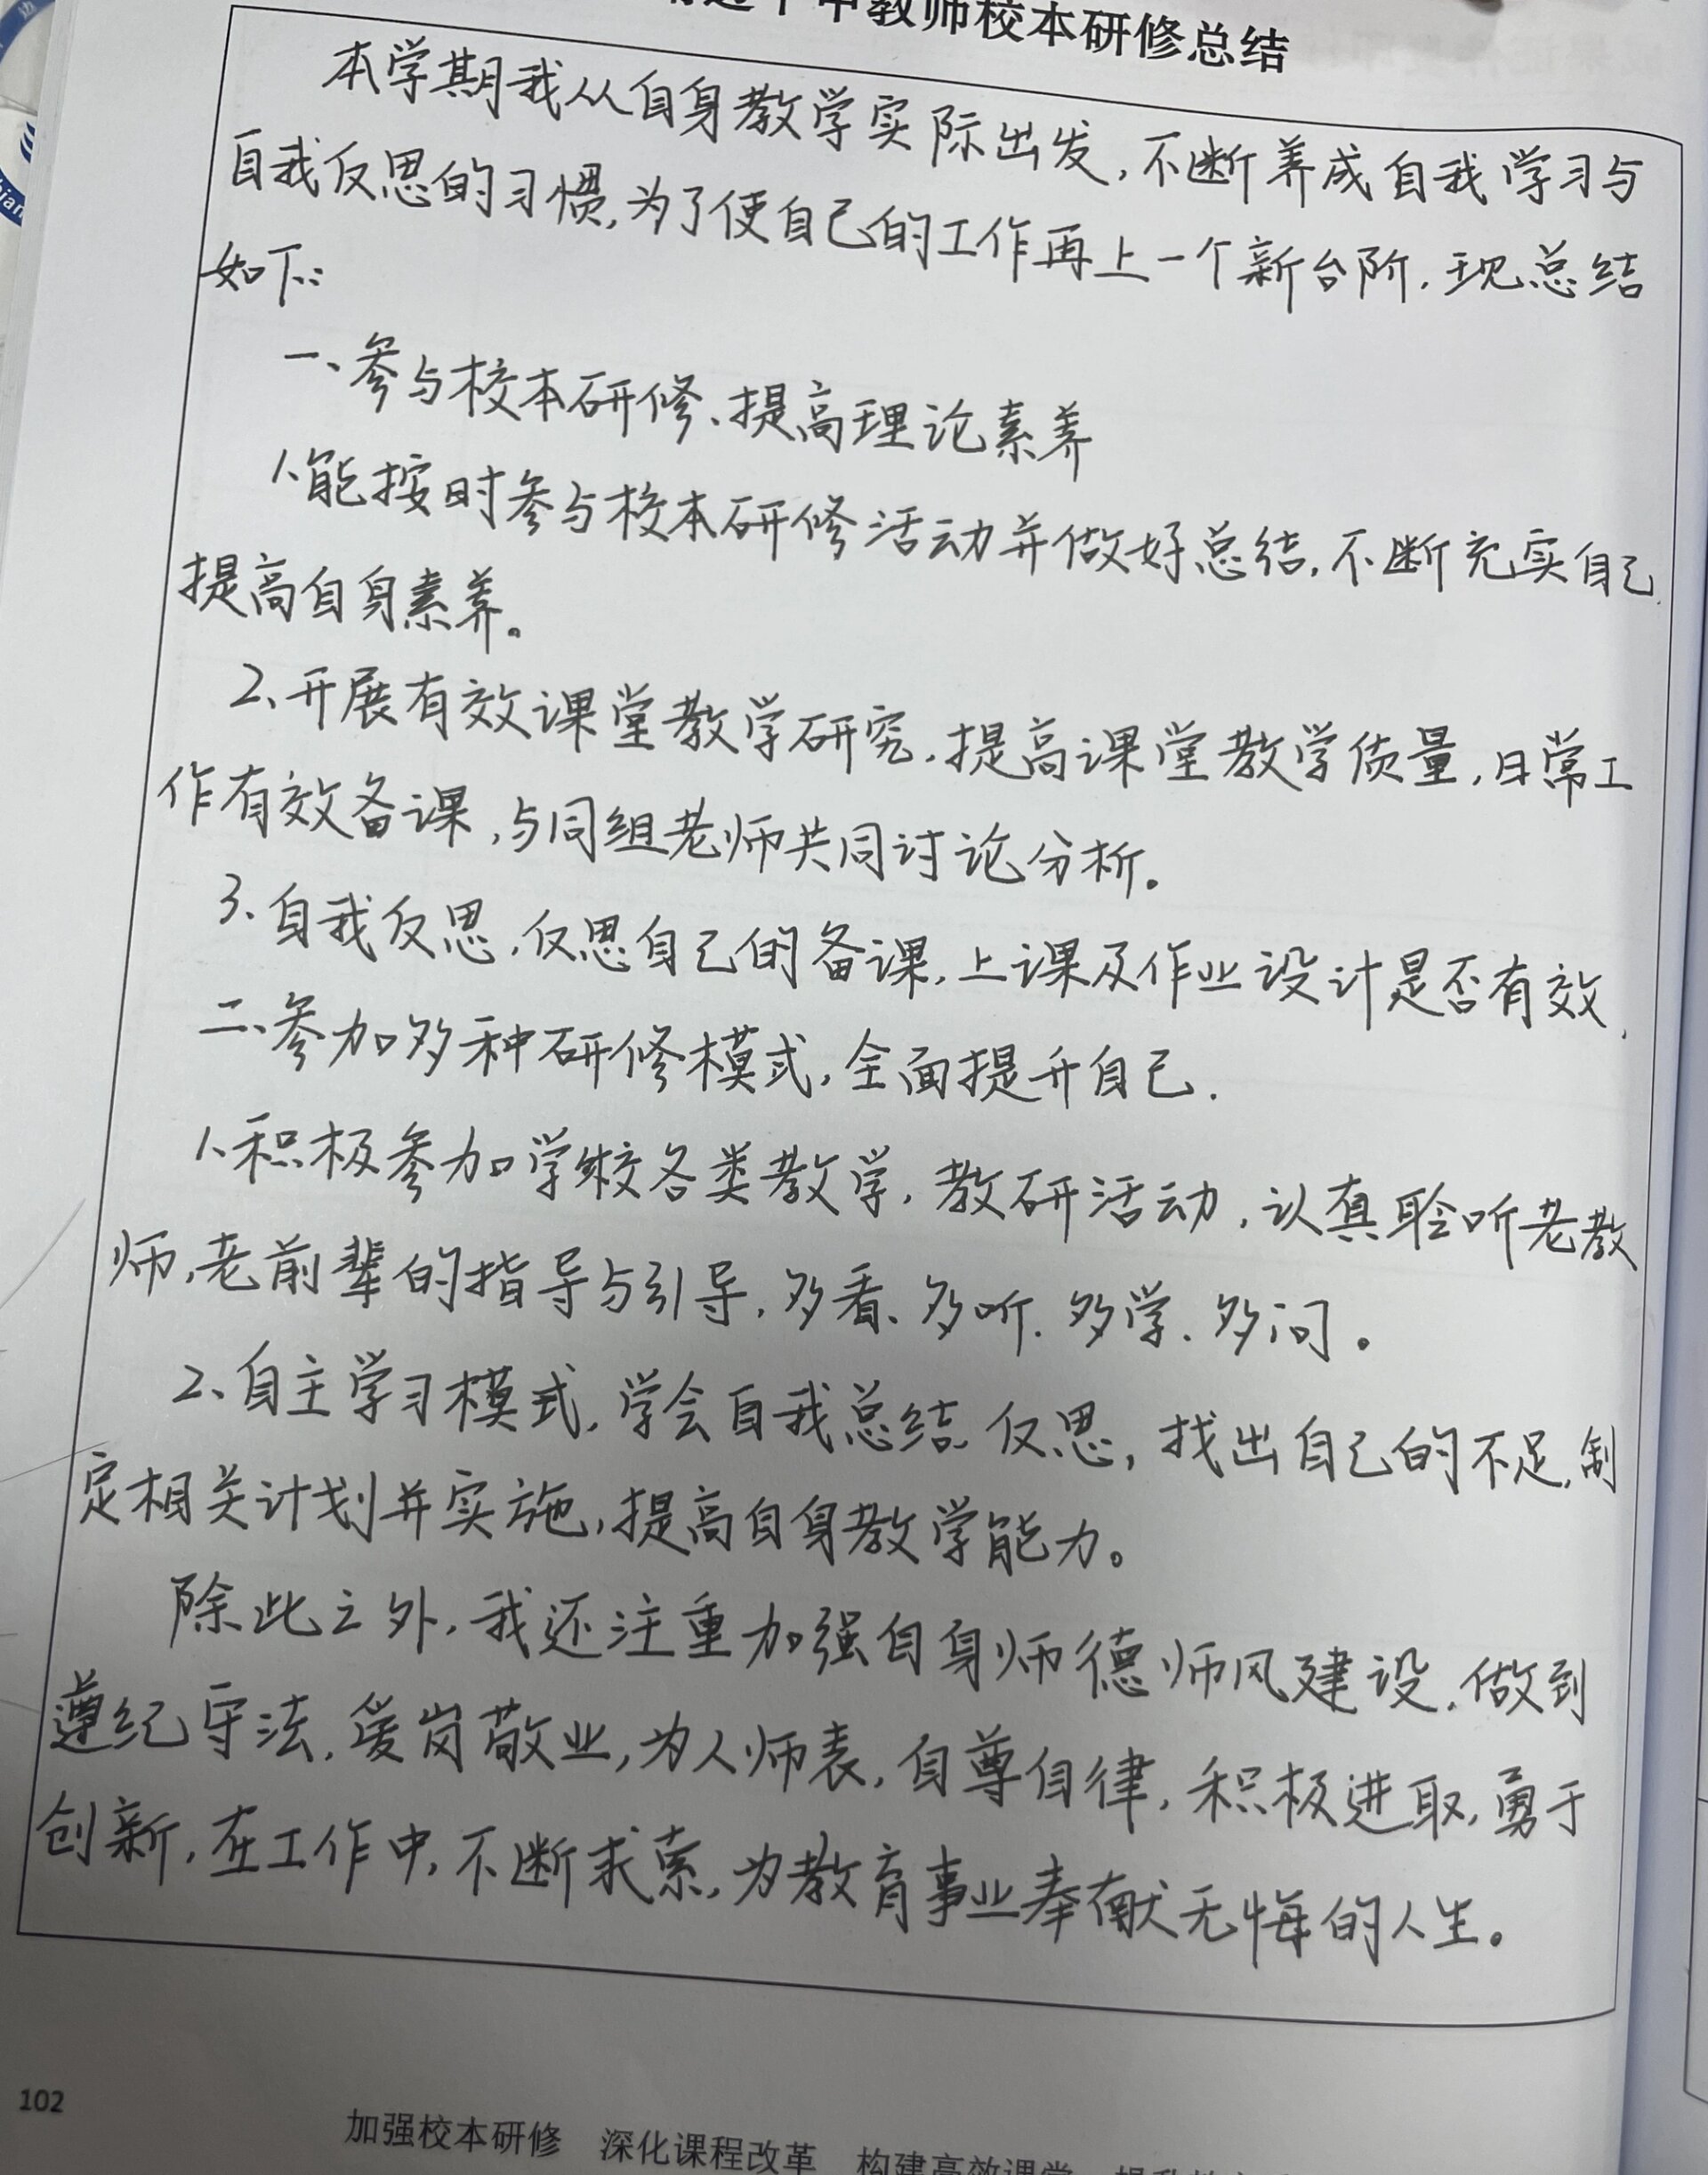 教师校本研修总结
本学期我从自身教学实际出发,不断养成自我学习与
自我反思的习惯,为了使自己的工作再上一个新台阶,现总结
如下:
一、参与校本研修、提高理论素养
1、能按时参与校本研修活动并做好总结,不断充实自己,
提高自身素养。
2、开展有效课堂教学研究,提高课堂教学质量,日常工
作有效备课,与同组老师共同讨论分析。
3、自我反思,反思自己的备课,上课及作业设计是否有效,
二、参加多种研修模式,全面提升自己.
1、积极参加学校各类教学,教研活动,认真聆听老教
师,老前辈的指导与引导,多看、多听、多学、多问。
2、自主学习模式,学会自我总结、反思,找出自己的不足,制
定相关计划并实施,提高自身教学能力。
除此之外,我还注重加强自身师德师风建设,做到
遵纪守法,爱岗敬业,为人师表,自尊自律,积极进取,勇于
创新,在工作中,不断求索,为教育事业奉献无悔的人生。
102
加强校本研修 深化课程改革 构建高效课堂